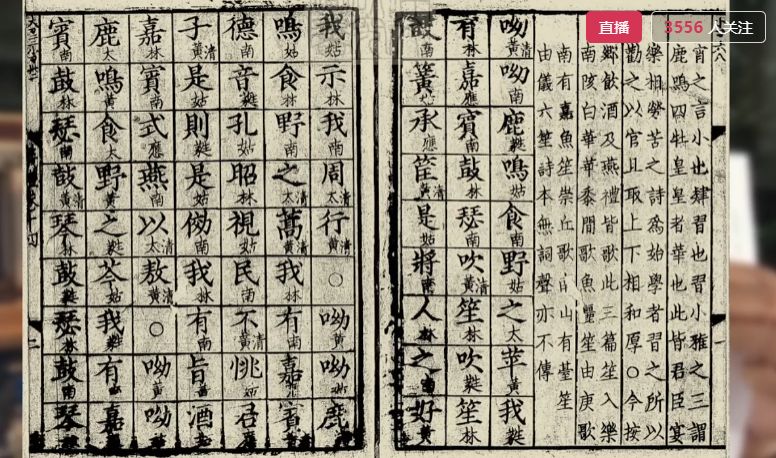 直播
3556 人关注
宵之言小也肄習也習小雅之三謂
鹿鳴四牡皇皇者華也此皆君臣宴
樂相勞苦之詩爲始學者習之所以
勸之以官且取上下相和厚○今按
鄉飲酒及燕禮皆歌此三篇笙入樂
南陔白華華黍間歌魚麗笙由庚歌
南有嘉魚笙崇丘歌南山有臺笙
由儀六笙詩本無詞聲亦不傳
呦黃清 呦南 鹿蕤 鳴姑 食南 野姑 之太 苹黃 我蕤
有林 嘉應 賓南 鼓林 瑟南 吹黃清 笙林 吹蕤 笙林
鼓南 簧姑 承應 筐黃清 是姑 將南 人林 之南 好黃
我姑 示林 我南 周太清 行黃清 ○ 呦黃 呦姑 鹿
鳴姑 食林 野南 之太清 蒿黃清 我林 有南 嘉 賓
德南 音蕤 孔姑 昭林 視姑 民南 不黃清 恌姑 君
子黃清 是姑 則蕤 是姑 傚南 我林 有南 旨 酒
嘉林 賓南 式應 燕南 以太清 敖黃清 ○ 呦黃 呦
鹿太 鳴黃 食太 野黃 之蕤 芩姑 我蕤 有南 嘉
賓南 鼓林 瑟南 鼓黃清 琴林 鼓蕤 瑟林 鼓南 琴